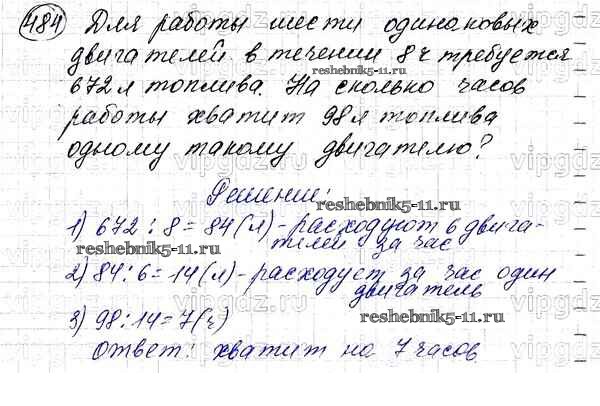 484 Для работы шести одинаковых
двигателей в течении 8 ч требуется
reshebnik5-11.ru
672 л топлива. На сколько часов
работы хватит 98 л топлива
одному такому двигателю?
Решение:
reshebnik5-11.ru
1) 672 : 8 = 84 (л) - расходуют 6 двига-
телей за час
reshebnik5-11.ru
2) 84 : 6 = 14 (л) - расходует за час один
двигатель
3) 98 : 14 = 7 (ч)
reshebnik5-11.ru
Ответ: хватит на 7 часов
reshebnik5-11.ru
vipgdz.ru